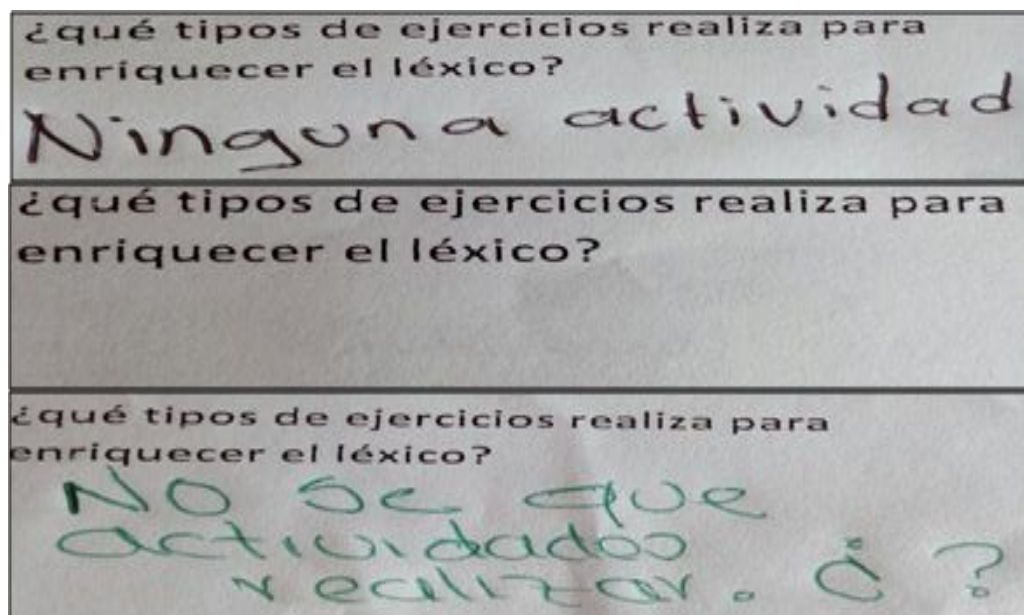 ¿qué tipos de ejercicios realiza para
enriquecer el léxico?
Ninguna actividad
¿qué tipos de ejercicios realiza para
enriquecer el léxico?
¿qué tipos de ejercicios realiza para
enriquecer el léxico?
NO se que
actividados
realizar. ¿ ?